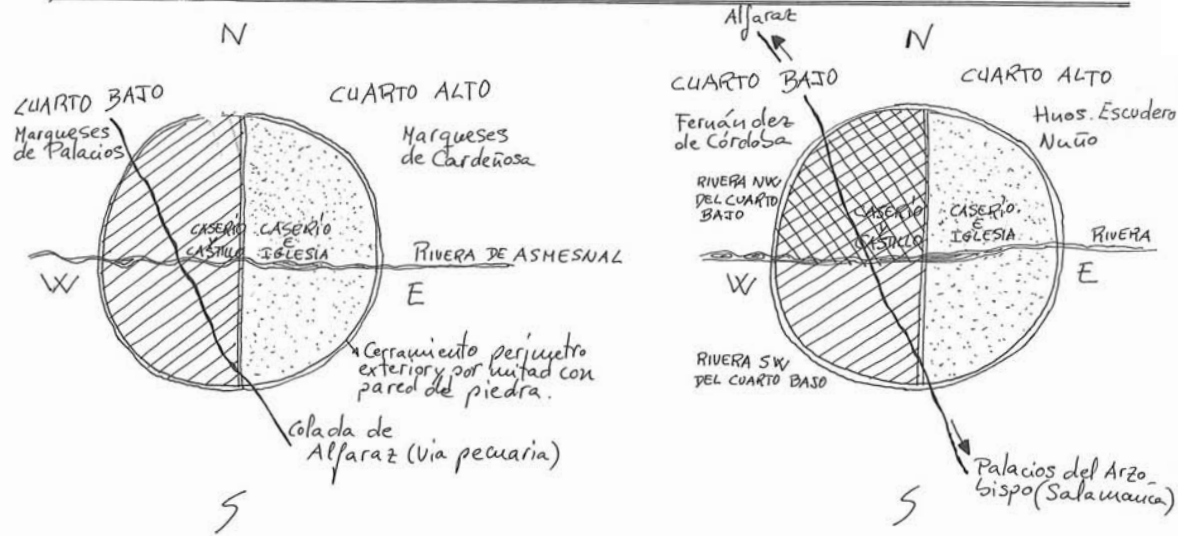 N
CUARTO BAJO
CUARTO ALTO
Marqueses
de Palacios
Marqueses
de Cardeñosa
CASERÍO
Y
CASTILLO
CASERÍO
E
IGLESIA
RIVERA DE ASMESNAL
W
E
Cerramiento perímetro
exterior y por mitad con
pared de piedra.
Colada de
Alfaraz (Via pecuaria)
S
Alfaraz
N
CUARTO BAJO
CUARTO ALTO
Fernández
de Córdoba
Hnos. Escudero
Nuño
RIVERA NW
DEL CUARTO
BAJO
CASERÍO
Y
CASTILLO
CASERÍO
E
IGLESIA
RIVERA
W
E
RIVERA SW
DEL CUARTO BAJO
Palacios del Arzo-
bispo (Salamanca)
S